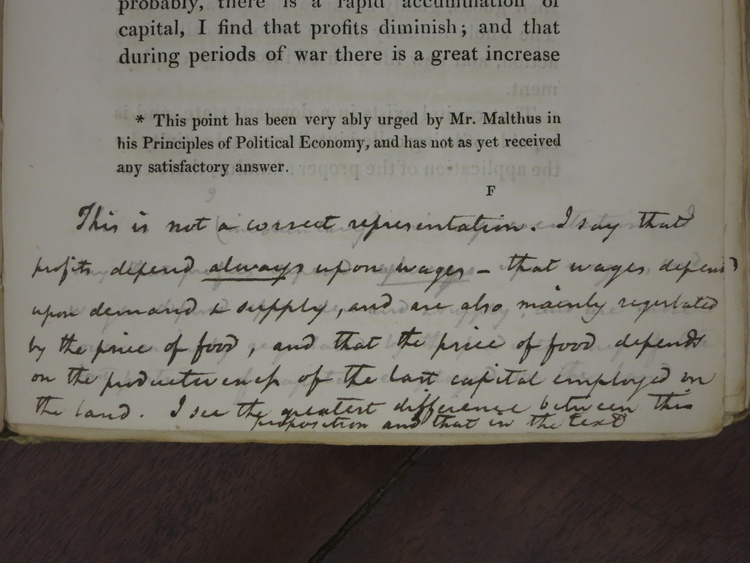 probably, there is a rapid accumulation of
capital, I find that profits diminish; and that
during periods of war there is a great increase
* This point has been very ably urged by Mr. Malthus in
his Principles of Political Economy, and has not as yet received
any satisfactory answer.
F
This is not a correct representation. I say that
profits depend always upon wages – that wages depend
upon demand & supply, and are also mainly regulated
by the price of food, and that the price of food depends
on the productiveness of the last capital employed on
the land. I see the greatest difference between this
proposition and that in the text